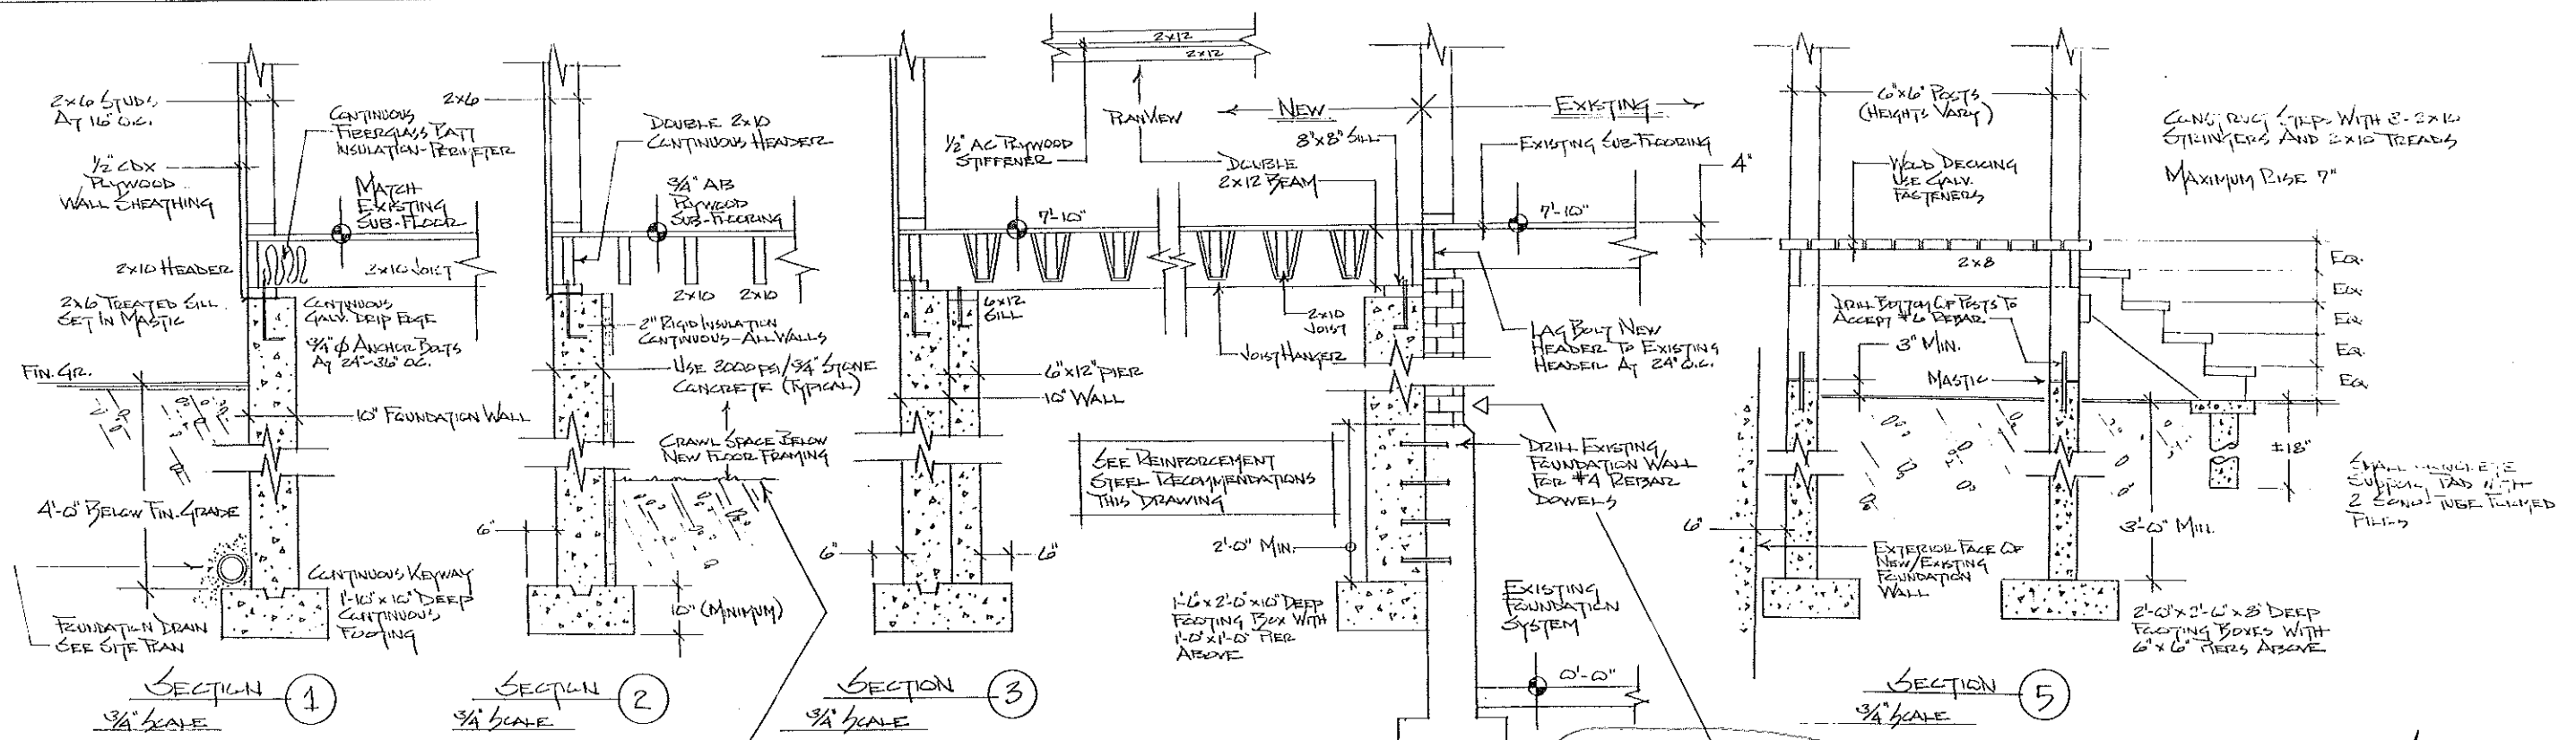 2x6 STUDS
AT 16" O.C.
1/2" CDX
PLYWOOD
WALL SHEATHING
CONTINUOUS
FIBERGLASS BATT
INSULATION-PERIMETER
MATCH
EXISTING
SUB-FLOOR
2x10 HEADER
2x10 JOIST
2x6 TREATED SILL
SET IN MASTIC
CONTINUOUS
GALV. DRIP EDGE
3/4" Φ ANCHOR BOLTS
AT 24"-36" O.C.
FIN. GR.
10" FOUNDATION WALL
4'-0" BELOW FIN. GRADE
CONTINUOUS KEYWAY
1'-10" x 10" DEEP
CONTINUOUS
FOOTING
FOUNDATION DRAIN
SEE SITE PLAN
SECTION 1
3/4" SCALE
2x6
DOUBLE 2x10
CONTINUOUS HEADER
3/4" AB
PLYWOOD
SUB-FLOORING
2x10 2x10
2" RIGID INSULATION
CONTINUOUS-ALL WALLS
USE 3000 PSI/3/4" STONE
CONCRETE (TYPICAL)
CRAWL SPACE BELOW
NEW FLOOR FRAMING
6"
10" (MINIMUM)
SECTION 2
3/4" SCALE
2x12
2x12
PLAN VIEW
1/2" AC PLYWOOD
STIFFENER
NEW
EXISTING
8"x8" SILL
DOUBLE
2x12 BEAM
EXISTING SUB-FLOORING
4"
7'-10"
7'-10"
6x12
SILL
2x10
JOIST
JOIST HANGER
LAG BOLT NEW
HEADER TO EXISTING
HEADER AT 24" O.C.
6"x12" PIER
10" WALL
SEE REINFORCEMENT
STEEL RECOMMENDATIONS
THIS DRAWING
DRILL EXISTING
FOUNDATION WALL
FOR #4 REBAR
DOWELS
6"
6"
2'-0" MIN.
1'-6"x2'-0"x10" DEEP
FOOTING BOX WITH
1'-0"x1'-0" PIER
ABOVE
EXISTING
FOUNDATION
SYSTEM
0'-0"
SECTION 3
3/4" SCALE
6"x6" POSTS
(HEIGHTS VARY)
WOOD DECKING
USE GALV.
FASTENERS
CONSTRUCT STEPS WITH 2x10
STRINGERS AND 2x10 TREADS
MAXIMUM RISE 7"
2x8
EQ.
EQ.
EQ.
EQ.
EQ.
DRILL BOTTOM OF POSTS TO
ACCEPT REBAR
3" MIN.
MASTIC
±18"
SMALL CONCRETE
SUPPORT PAD WITH
2 SONO-TUBE FORMED
PILES
6"
3'-0" MIN.
EXTERIOR FACE OF
NEW/EXISTING
FOUNDATION
WALL
2'-0"x2'-0"x8" DEEP
FOOTING BOXES WITH
6"x6" PIERS ABOVE
SECTION 5
3/4" SCALE